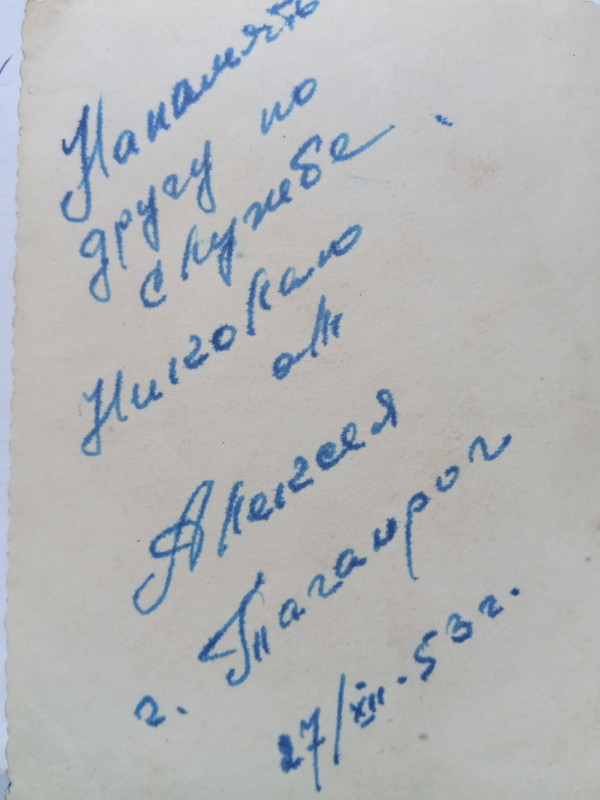 Напамять
другу по
службе.
Николаю
от
Алексея
г. Таганрог
27/XII-53г.